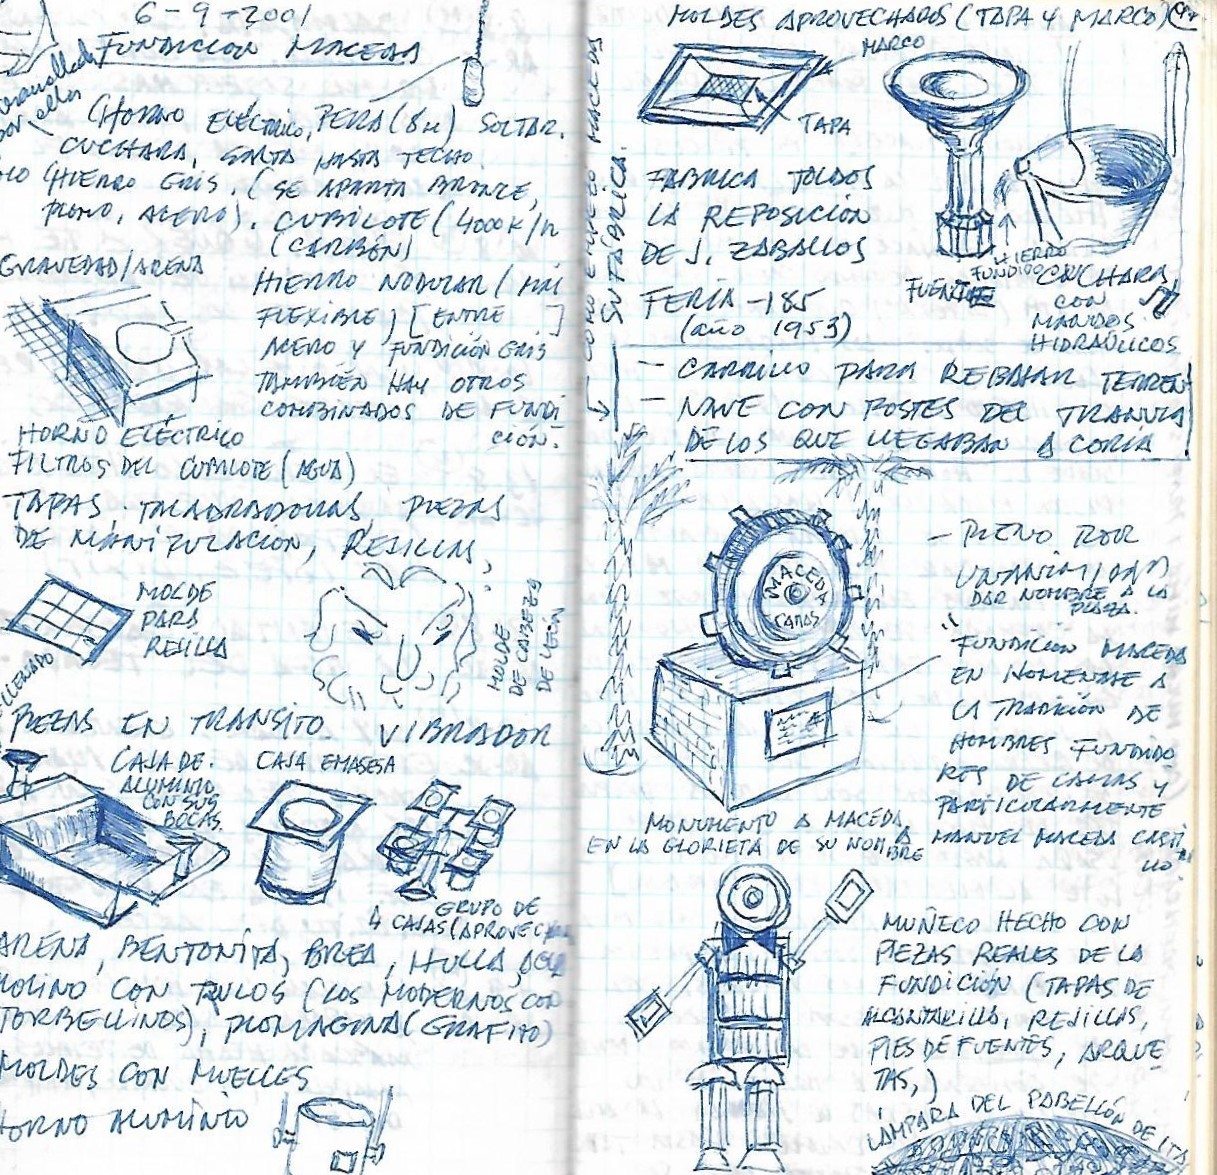 6-9-2001
FUNDICION MACEDA
CHORNO ELÉCTRICO, PERA (8M) SOLTAR.
CUCHARA, SALTA HASTA TECHO
HIERRO GRIS. (SE APARTA BRONCE,
PLOMO, ACERO). CUBILOTE (4000K/H
(CARBÓN)
GRAVEDAD/ARENA
HIERRO NODULAR (MÁS
FLEXIBLE) [ENTRE
ACERO Y FUNDICIÓN GRIS]
TAMBIÉN HAY OTROS
COMBINADOS DE FUNDI
CIÓN.
HORNO ELÉCTRICO
FILTROS DEL CUBILOTE (AGUA)
TAPAS, TALADRADORAS, PIEZAS
DE MANIPULACIÓN, REJILLAS,
MOLDE
PARA
REJILLA
MOLDE
DE CABEZA
DE LEÓN
PIEZAS EN TRANSITO. VIBRADOR
CAJA DE
ALUMINIO
CON SUS
BOCAS.
CAJA EMASESA
GRUPO DE
4 CAJAS (APROVECHAR
ARENA, BENTONITA, BREA, HULLA, AGUA
MOLINO CON RULOS (LOS MODERNOS CON
TORBELLINOS), PLOMAGINA (GRAFITO)
MOLDES CON MUELLES
HORNO ALUMINIO
MOLDES APROVECHADOS (TAPA Y MARCO)
MARCO
TAPA
FABRICA TOLDOS
LA REPOSICION
DE J. ZABALLOS
FERIA -185
(año 1953)
HIERRO
FUNDIDO
FUENTE
CUCHARA
CON
MANDOS
HIDRAULICOS
COMO EMPEZO MACEDA
SU FÁBRICA.
- CARRILLO PARA REBAJAR TERREN
- NAVE CON POSTES DEL TRANVIA
DE LOS QUE LLEGABAN A CORIA
MACEDA
CAMAS
- PLENO POR
UNANIMIDAD
DAR NOMBRE A LA
PLAZA.
FUNDICION MACEDA
EN HOMENAJE A
LA TRADICIÓN DE
HOMBRES FUNDIDO
RES DE CAMAS Y
PARTICULARMENTE
MANUEL MACEDA CASTI
LLO
MONUMENTO A MACEDA
EN LA GLORIETA DE SU NOMBRE
MUÑECO HECHO CON
PIEZAS REALES DE LA
FUNDICIÓN (TAPAS DE
ALCANTARILLA, REJILLAS,
PIES DE FUENTES, ARQUE-
TAS,)
LAMPARA DEL PABELLÓN DE ITA